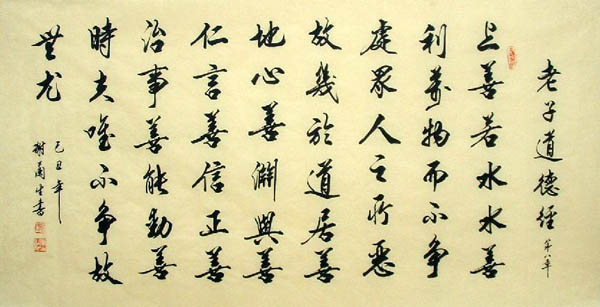 老子道德經
第八章
上善若水水善
利萬物而不争
處眾人之所惡
故幾於道居善
地心善淵與善
仁言善信正善
治事善能動善
時夫唯不争故
無尤
己丑年
生書